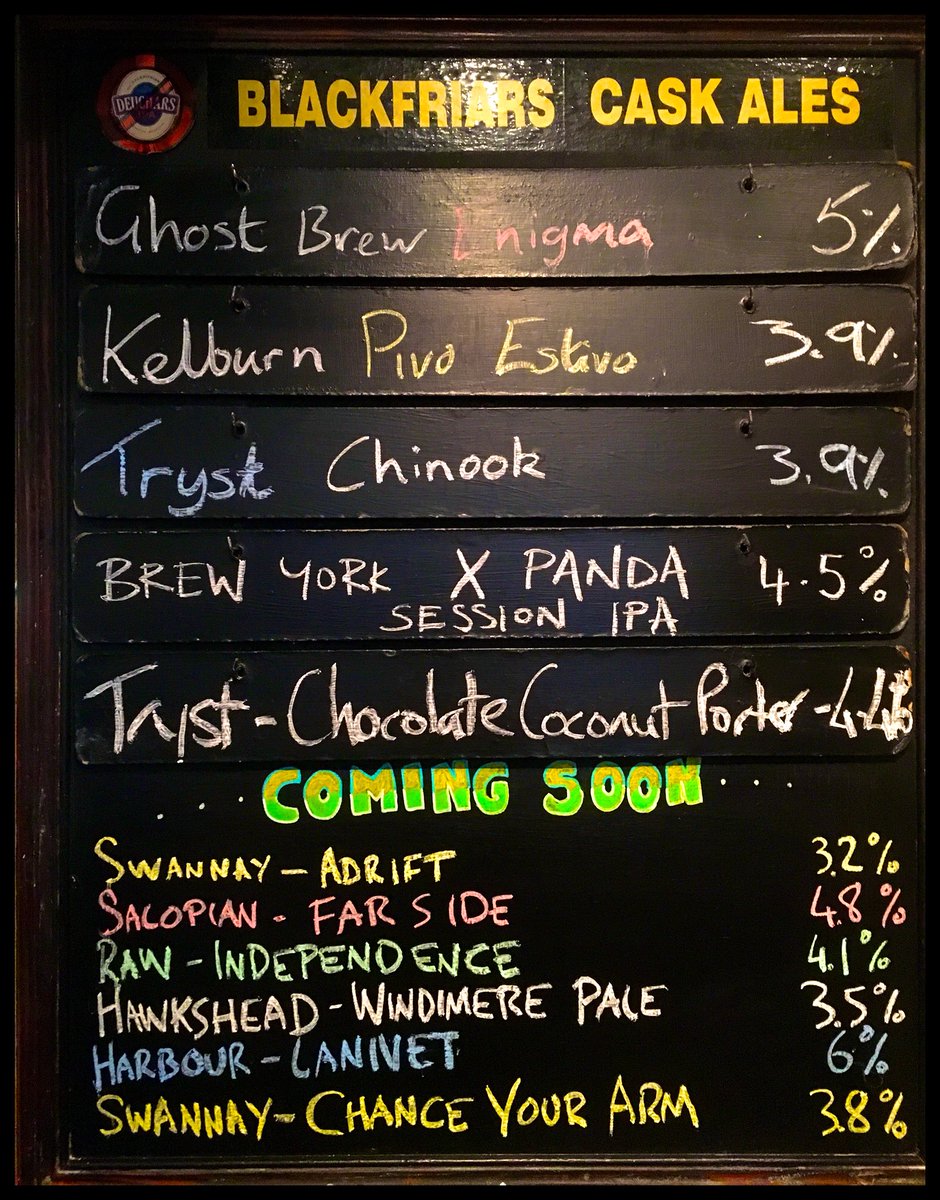 DEUCHARS
BLACKFRIARS CASK ALES
Ghost Brew Enigma 5%
Kelburn Pivo Estivo 3.9%
Tryst Chinook 3.9%
BREW YORK X PANDA 4.5%
SESSION IPA
Tryst - Chocolate Coconut Porter - 4.4%
.... COMING SOON ....
SWANNAY - ADRIFT 3.2%
SALOPIAN - FAR SIDE 4.8%
RAW - INDEPENDENCE 4.1%
HAWKSHEAD - WINDIMERE PALE 3.5%
HARBOUR - LANIVET 6%
SWANNAY - CHANCE YOUR ARM 3.8%